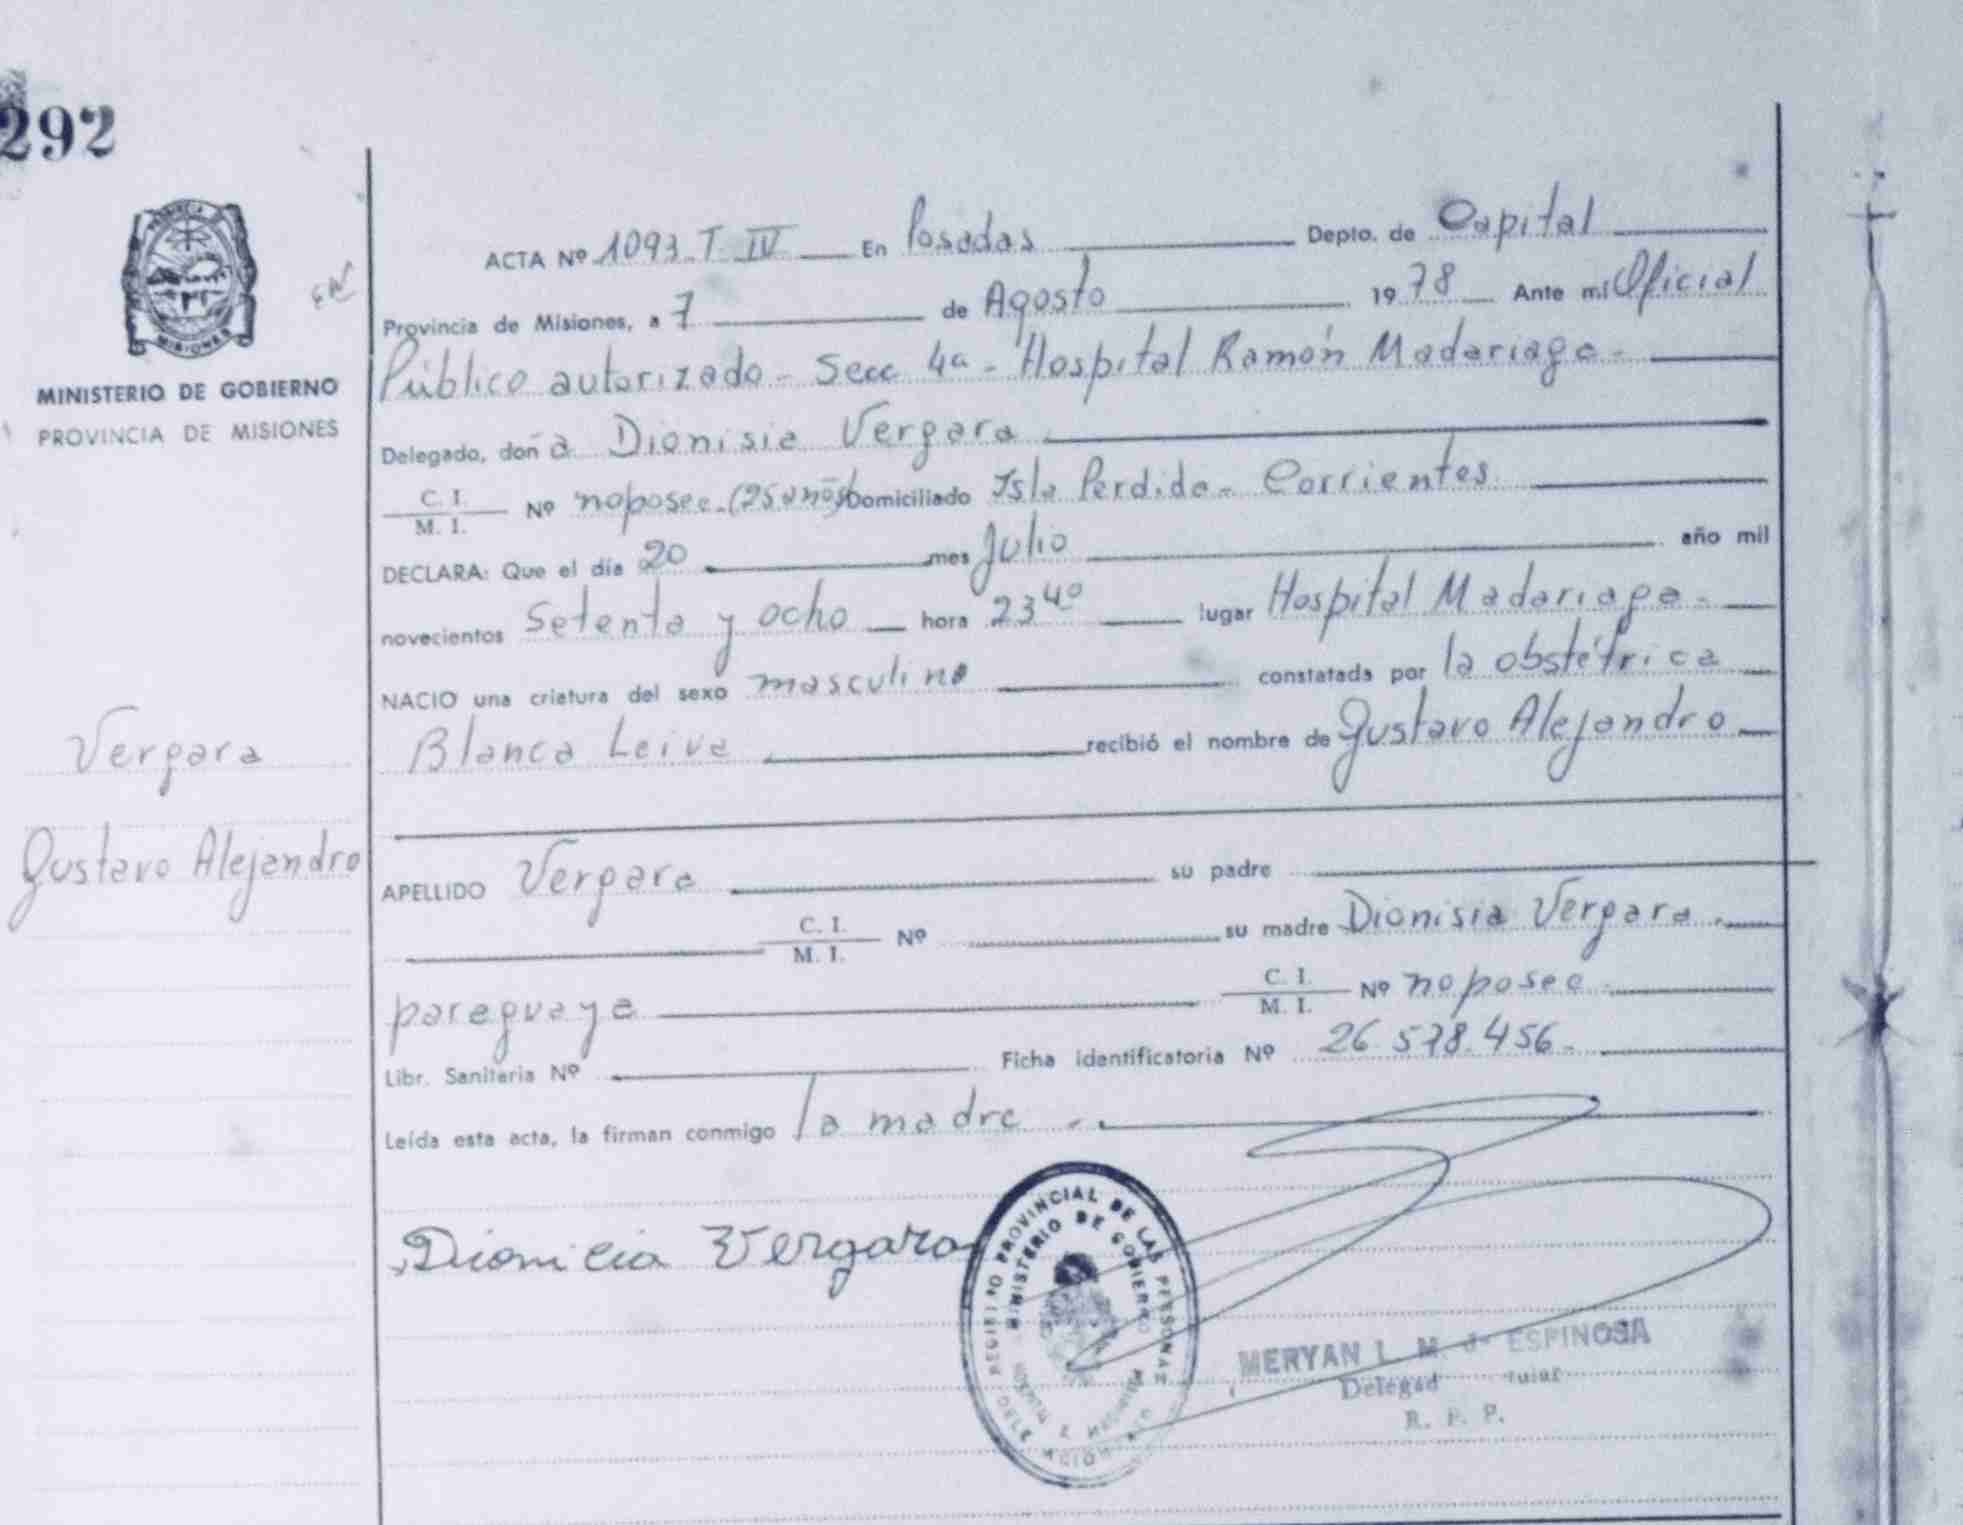 292
PROVINCIA DE
MISIONES
MINISTERIO DE GOBIERNO
PROVINCIA DE MISIONES
ACTA Nº 1093 T IV En Posadas Depto. de Capital
Provincia de Misiones, a 7 de Agosto 1978 Ante mi Oficial
Público autorizado - Secc 4a - Hospital Ramón Madariaga -
Delegado, doña Dionisia Vergara
C. I.
M. I. Nº noposee (25 años) Domiciliado Isla Perdida - Corrientes
DECLARA: Que el día 20 mes Julio año mil
novecientos Setenta y ocho hora 23 40 lugar Hospital Madariaga -
NACIO una criatura del sexo masculino constatada por la obstétrica
Blanca Leiva recibió el nombre de Gustavo Alejandro
Vergara
Gustavo Alejandro
APELLIDO Vergara su padre
C. I.
M. I. Nº su madre Dionisia Vergara
paraguaya C. I.
M. I. Nº noposee
Libr. Sanitaria Nº Ficha identificatoria Nº 26 578.456
Leída esta acta, la firman conmigo la madre
Dionicia Vergara
REGISTRO PROVINCIAL DE LAS PERSONAS
MINISTERIO DE GOBIERNO
MERYAN L. M. ESPINOSA
R. P. P.